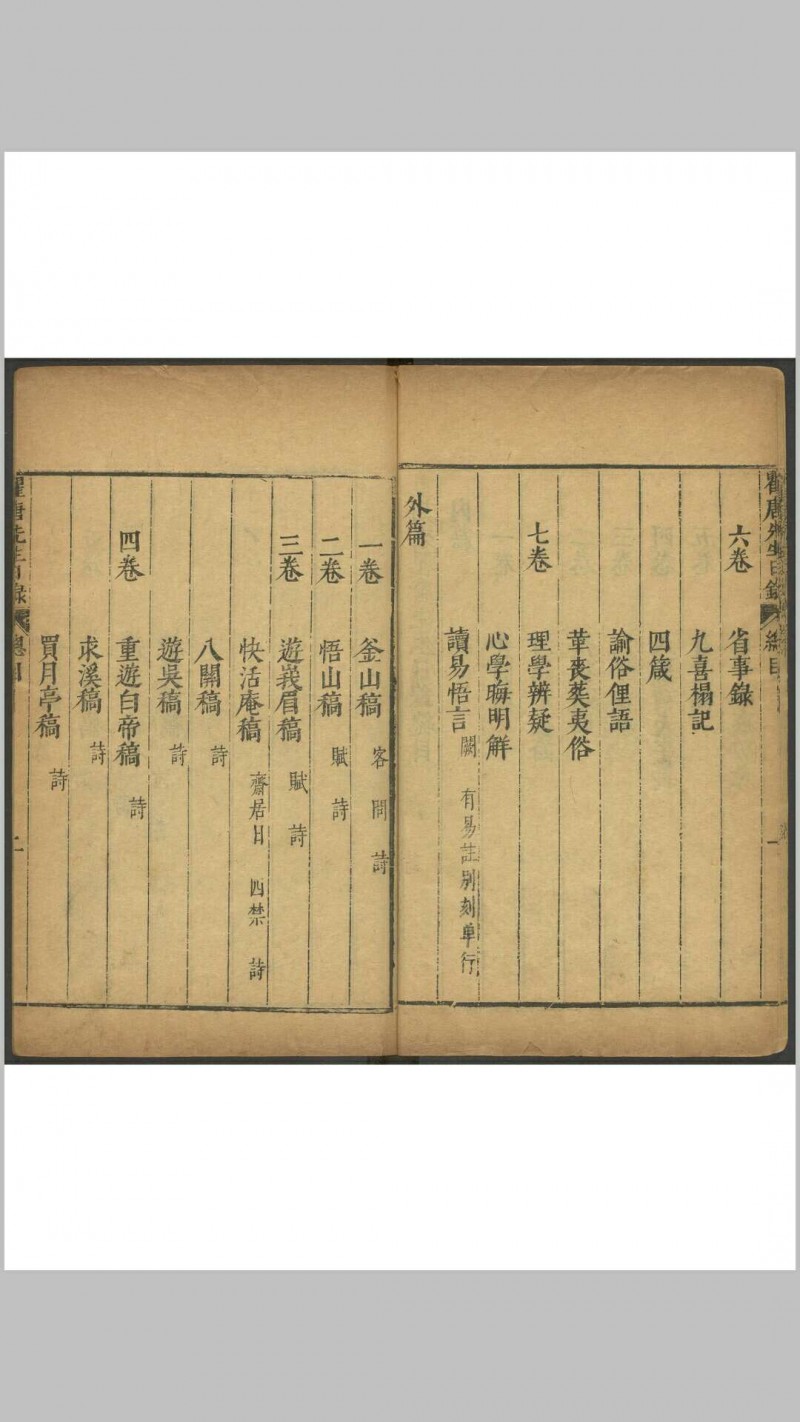 瞿唐先生日錄 總目 一
六卷 省事錄
九喜榻記
四箴
諭俗俚語
革喪葬夷俗
七卷 理學辨疑
心學晦明解
讀易悟言 闕 有易註別刻單行
外篇
一卷 釜山稿 客問 詩
二卷 悟山稿 賦 詩
三卷 遊峩眉稿 賦 詩
快活庵稿 齋居日 四禁 詩
八關稿 詩
遊吳稿 詩
四卷 重遊白帝稿 詩
求溪稿 詩
買月亭稿 詩
瞿唐先生日錄 總目 二